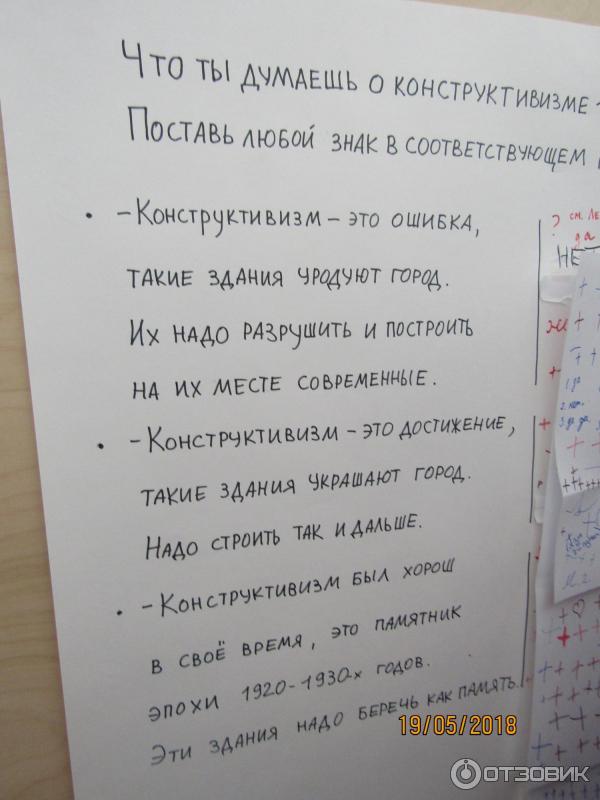 Что ты думаешь о конструктивизме -
Поставь любой знак в соответствующем
• - Конструктивизм - это ошибка,
такие здания уродуют город.
Их надо разрушить и построить
на их месте современные.
• - Конструктивизм - это достижение,
такие здания украшают город.
Надо строить так и дальше.
• - Конструктивизм был хорош
в своё время, это памятник
эпохи 1920-1930-х годов.
Эти здания надо беречь как память.
? см.
? да
НЕ
1. да
2. нет.
3. да да
19/05/2018
ОТЗОВИК